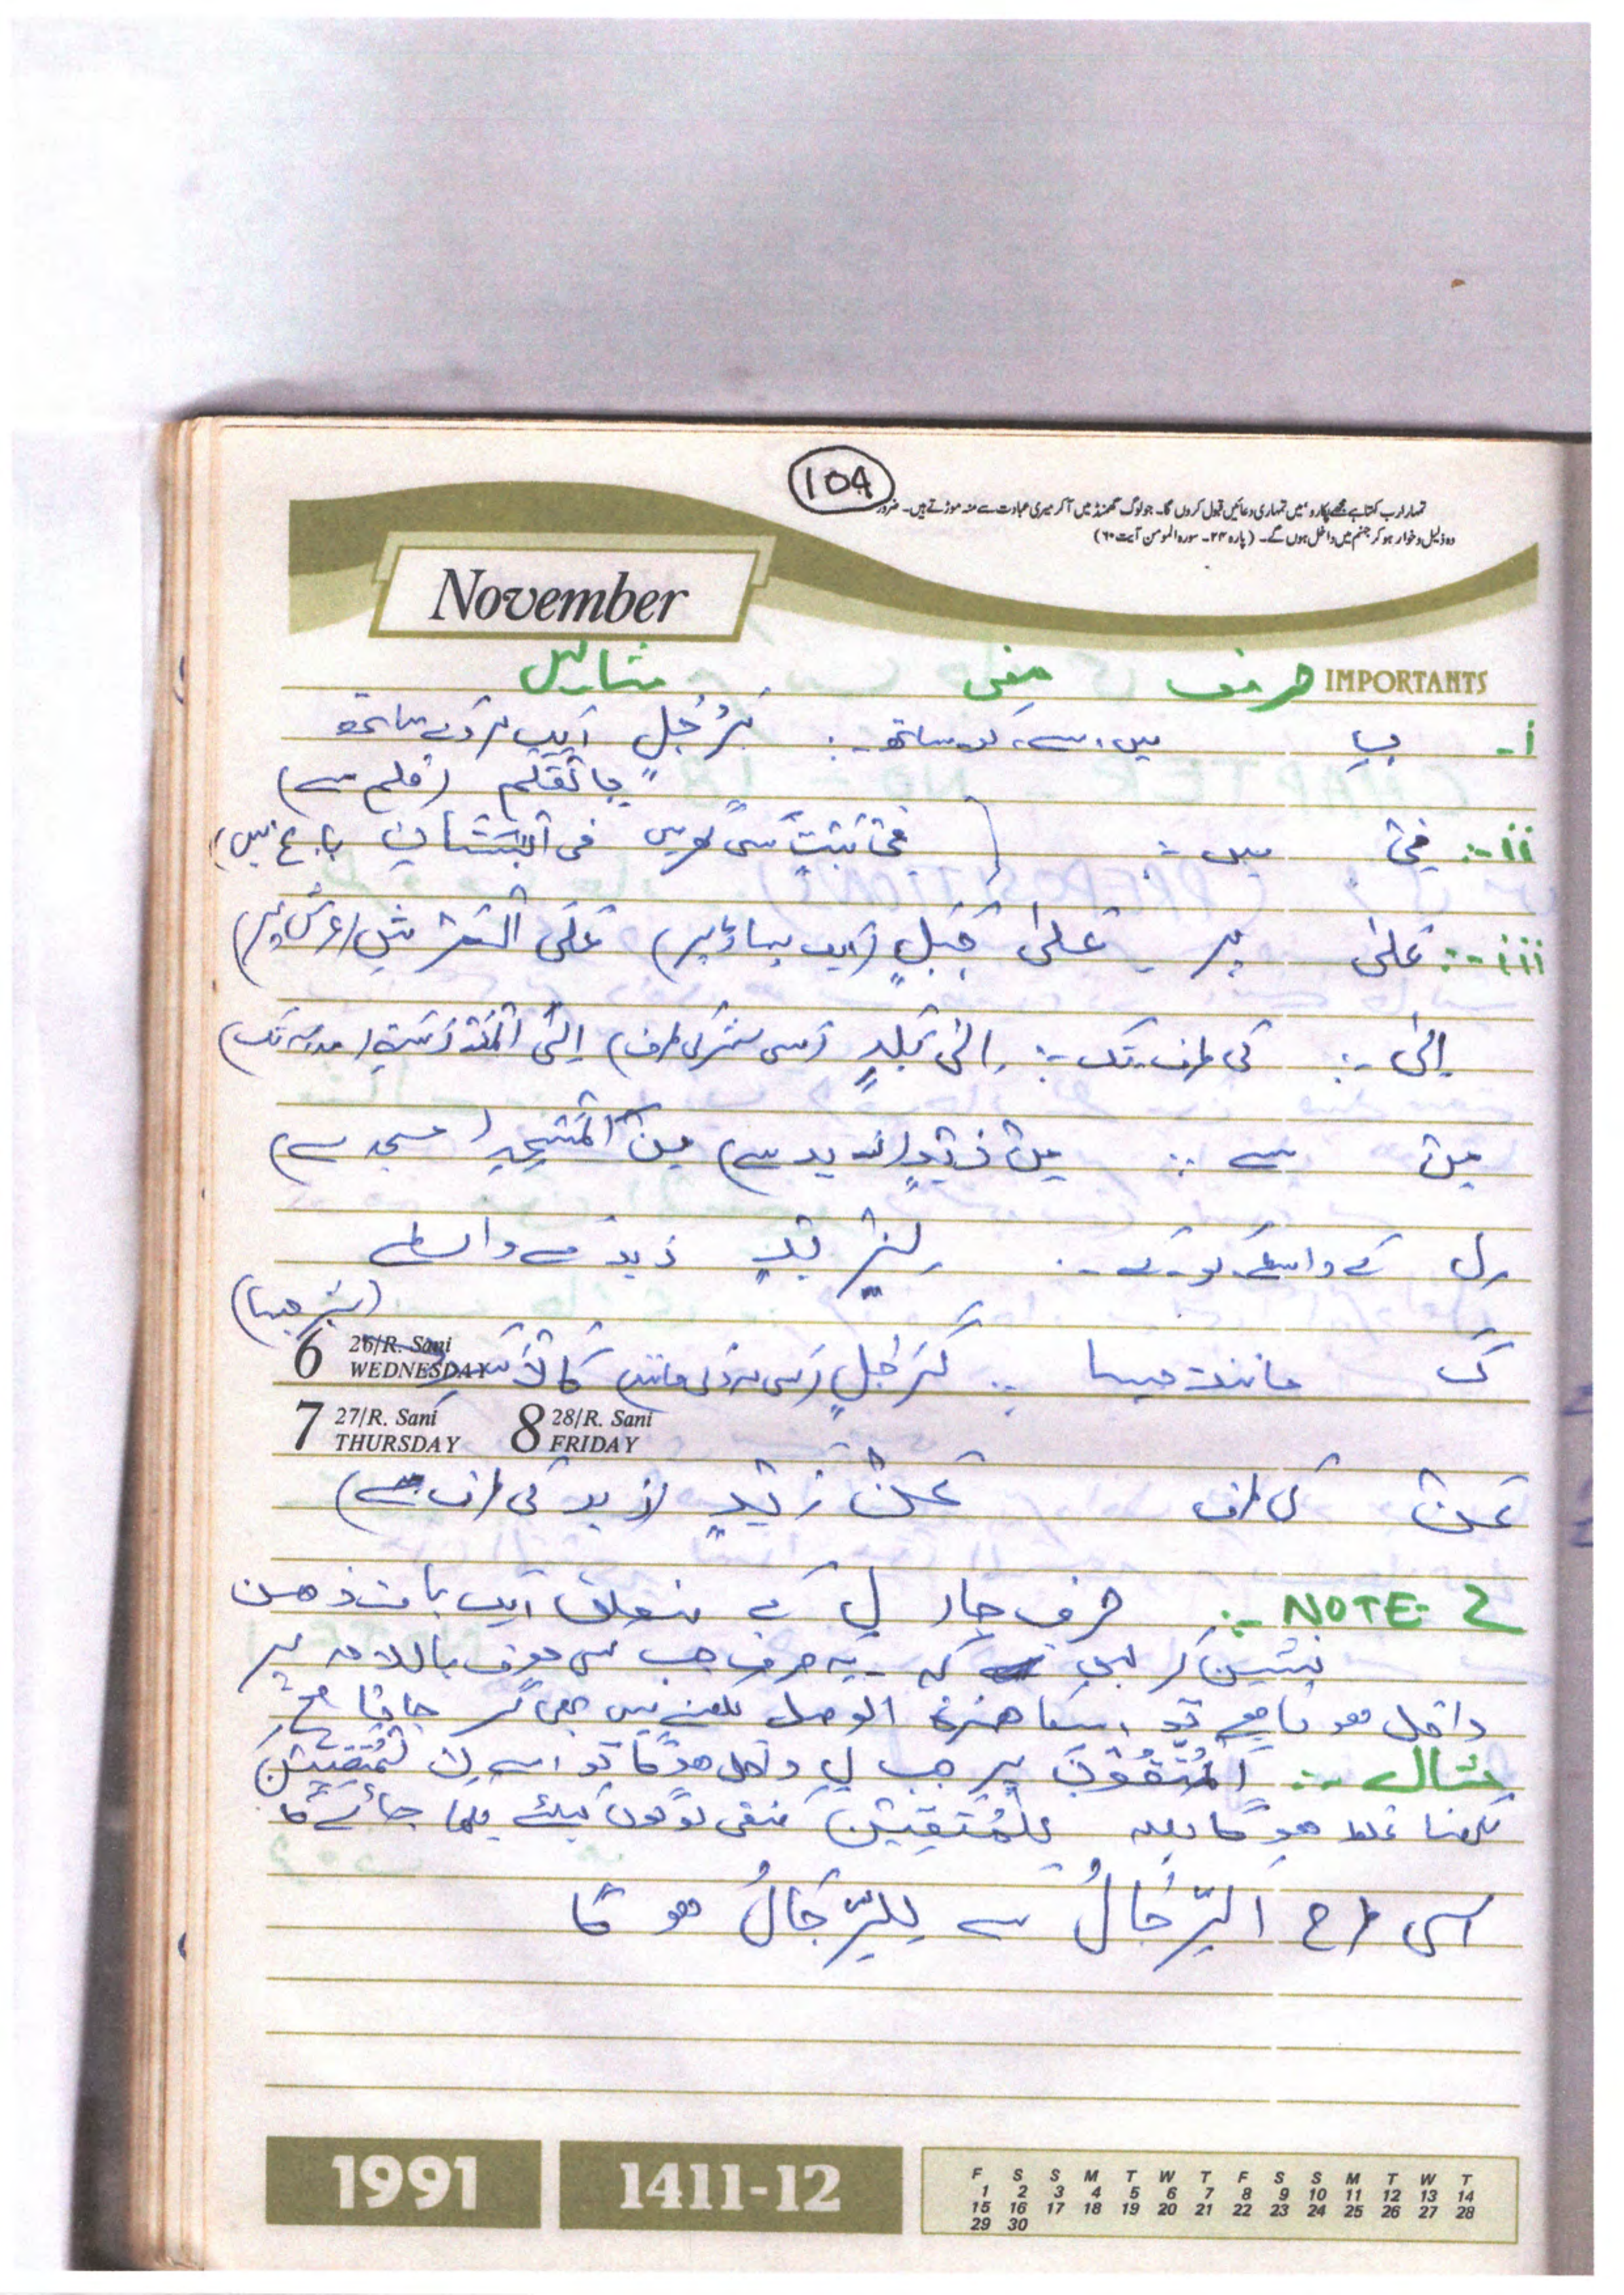 104
تمہارا رب کہتا ہے مجھے پکارو، میں تمہاری دعائیں قبول کروں گا۔ جو لوگ گھمنڈ میں آکر میری عبادت سے منہ موڑتے ہیں۔ ضرور
وہ ذلیل و خوار ہو کر جہنم میں داخل ہوں گے۔ (پارہ ۲۴۔ سورہ المومن آیت ۶۰)
November
IMPORTANTS حرف معنی مثالیں
i- بِ میں، سے، کے ساتھ -: بِرَجُلٍ ایک مرد کے ساتھ
بِالْقَلَمِ (قلم سے)
ii-: فِیْ میں -: فِیْ بَیْتٍ کسی گھر میں فی الْبُسْتَانِ باغ میں)
iii-: عَلٰی پر - عَلٰی جَبَلٍ (ایک پہاڑ پر) عَلَی الْعَرْشِ (عرش پر)
اِلٰی -: کی طرف، تک -: اِلٰی بَلَدٍ (کسی شہر کی طرف) اِلَی الْمَدِیْنَۃِ (مدینہ تک)
مِنْ سے -: مِنْ زَیْدٍ (زید سے) مِنَ الْمَسْجِدِ (مسجد سے)
لِ کے واسطے، کو، کے -: لِزَیْدٍ زید کے واسطے
(شیر جیسا)
6 26/R. Sani
WEDNESDAY
کَ مانند، جیسا -: کَرَجُلٍ (کسی مرد کی مانند) کَالْاَسَدِ
7 27/R. Sani THURSDAY 8 28/R. Sani FRIDAY
عَنْ کی طرف عَنْ زَیْدٍ (زید کی طرف سے)
NOTE- 2 -: حرف جار لِ کے متعلق ایک بات ذھن
نشین کر لیں کہ - یہ حرف جب کسی معرف باللام پر
داخل ھوتا ھے تو اسکا ھمزۃ الوصل لکھنے میں بھی گر جاتا ھے
مثال -: اَلْمُتَّقُوْنَ پر جب لِ داخل ھوگا تو اسے لِالْمُتَّقِیْنَ
لکھنا غلط ھوگا بلکہ لِلْمُتَّقِیْنَ متقی لوگوں کیلئے لکھا جائے گا
اسی طرح اَلرِّجَالُ سے لِلرِّجَالُ ھو گا
1991 1411-12
F S S M T W T F S S M T W T
1 2 3 4 5 6 7 8 9 10 11 12 13 14
15 16 17 18 19 20 21 22 23 24 25 26 27 28
29 30